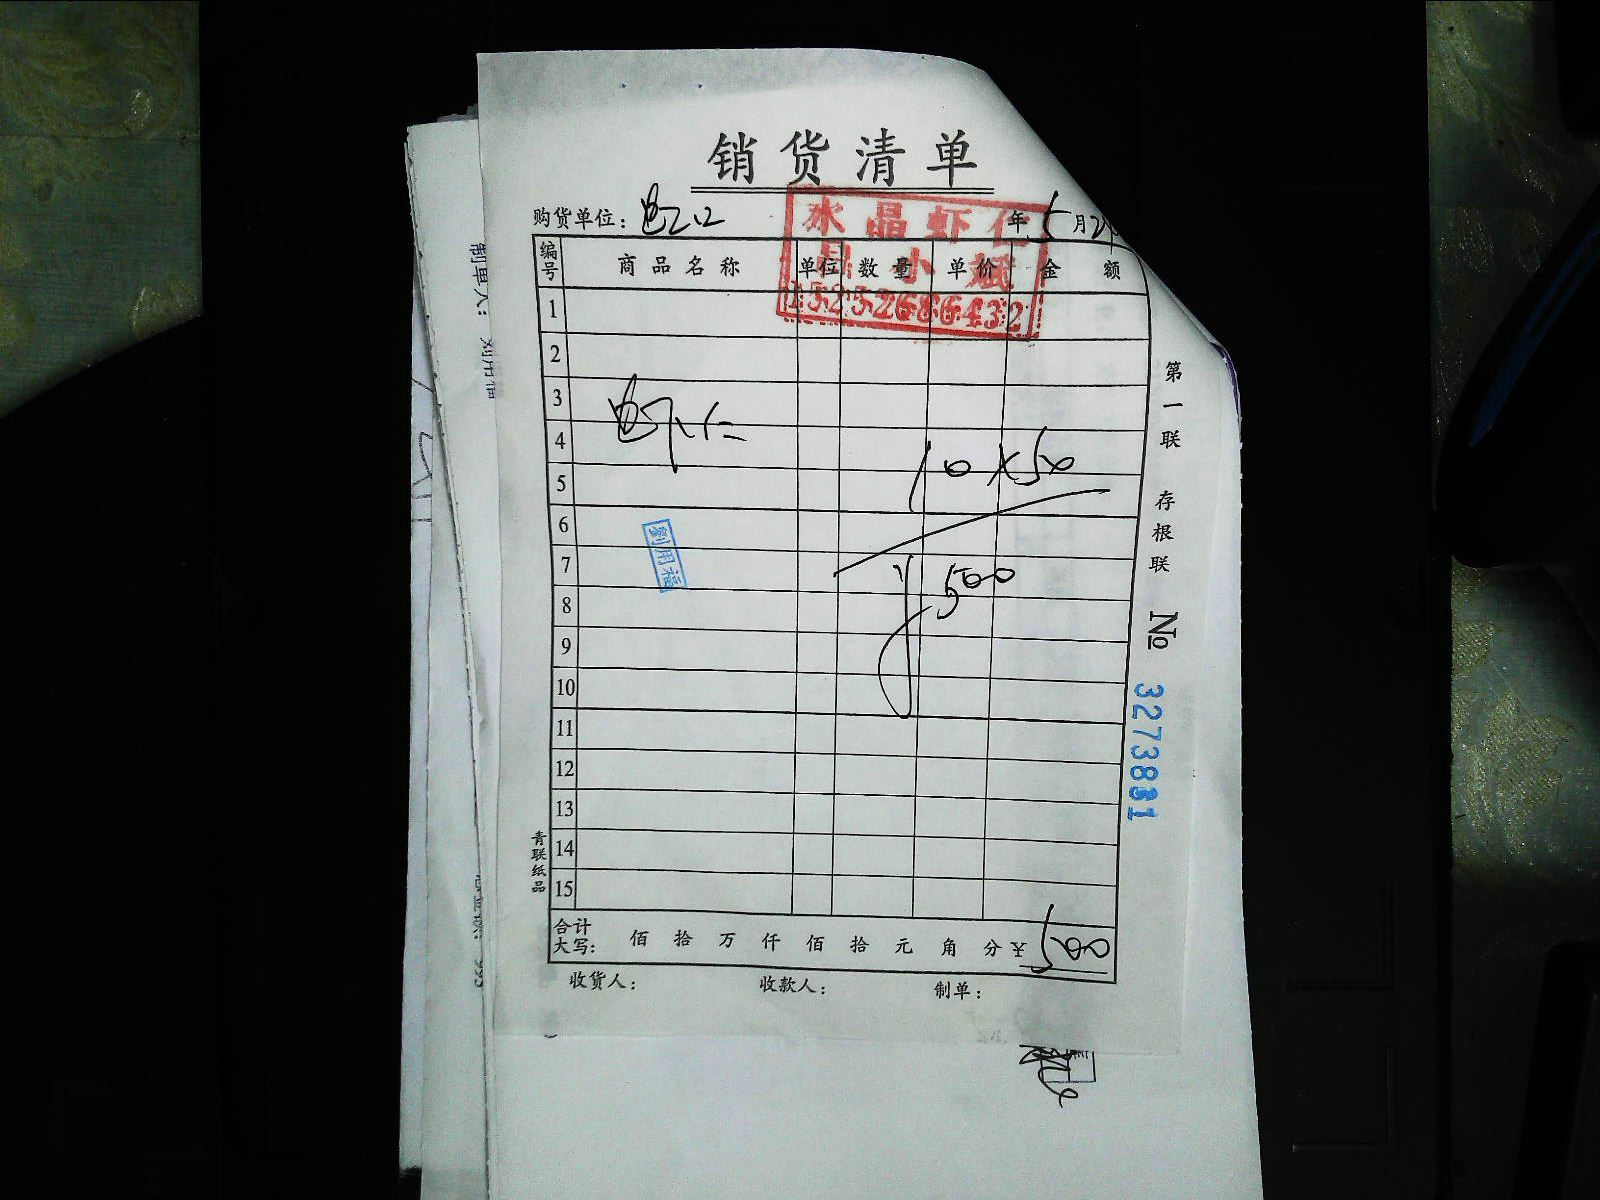 销货清单
购货单位: 年 5 月
水晶虾仁
小斌
15252686432
编号 商品名称 单位 数量 单价 金额
1
2
3
4
10×50
5
6
7
¥500
8
9
10
11
12
13
14
15
合计大写: 佰 拾 万 仟 佰 拾 元 角 分 ¥ 500
收货人: 收款人: 制单:
劉用福
第一联 存根联 № 3273881
青联纸品
制单人: 刘用福